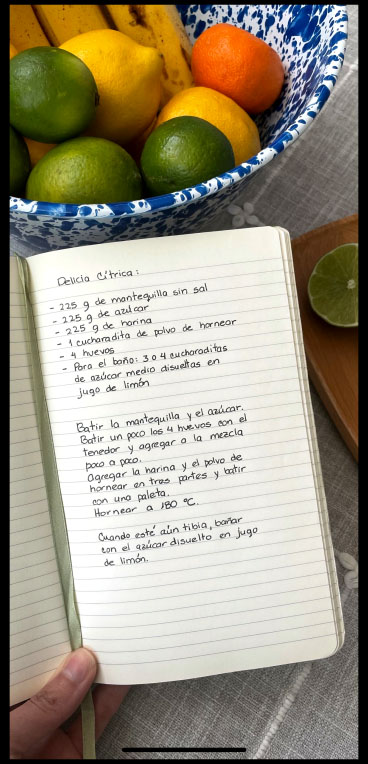 Delicia Cítrica:
- 225 g de mantequilla sin sal
- 225 g de azúcar
- 225 g de harina
- 1 cucharadita de polvo de hornear
- 4 huevos
- Para el baño: 3 o 4 cucharaditas
de azúcar medio disueltas en
jugo de limón
Batir la mantequilla y el azúcar.
Batir un poco los 4 huevos con el
tenedor y agregar a la mezcla
poco a poco.
Agregar la harina y el polvo de
hornear en tras partes y batir
con una paleta.
Hornear a 180 °C.
Cuando esté aún tibia, bañar
con el azúcar disuelto en jugo
de limón.